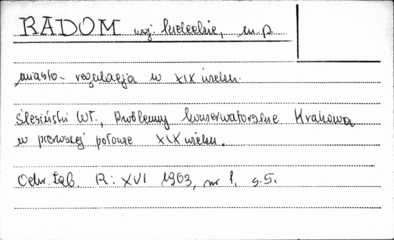 RADOM woj. kieleckie, m.p.
miasto - regulacja w XIX wieku.
Ślesiński Wł., Problemy konserwatorskie Krakowa
w pierwszej połowie XIX wieku.
Ochr. Zab. R: XVI 1963, nr 1, s.5.